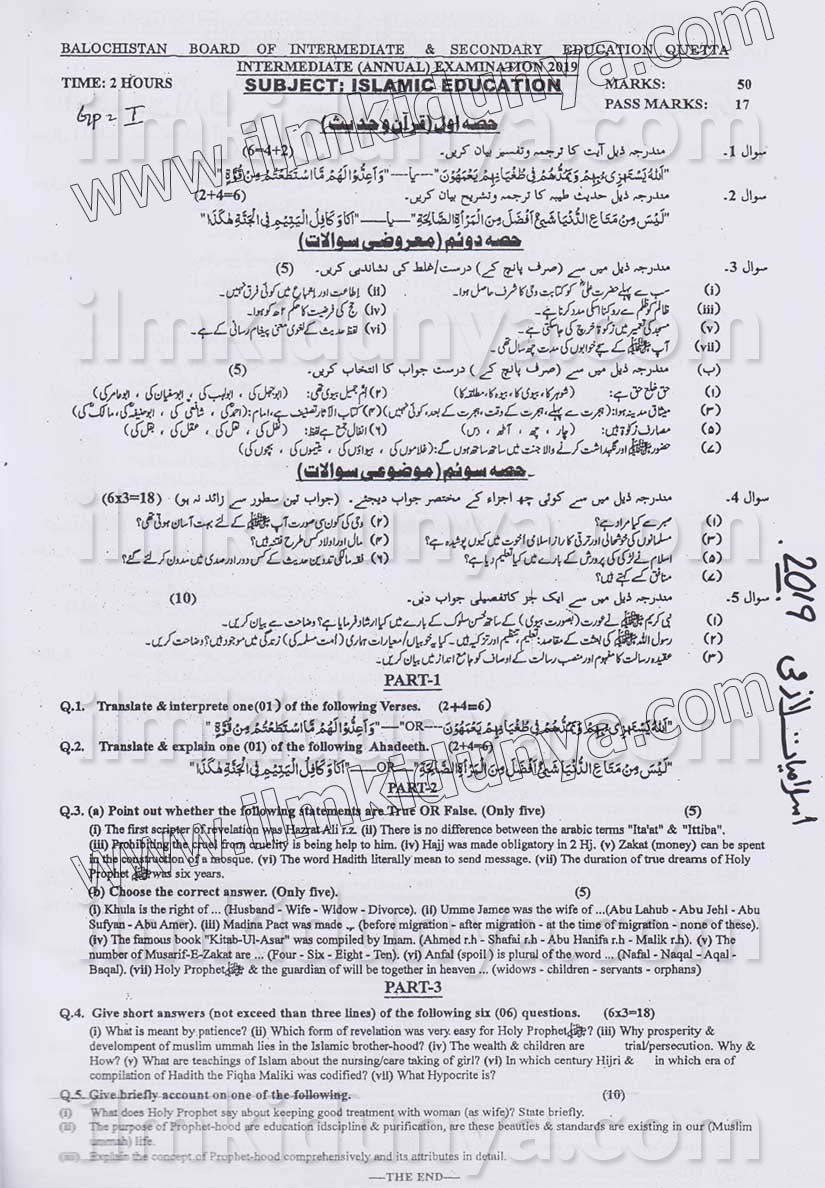 BALOCHISTAN BOARD OF INTERMEDIATE & SECONDARY EDUCATION QUETTA
INTERMEDIATE (ANNUAL) EXAMINATION 2019
TIME: 2 HOURS SUBJECT: ISLAMIC EDUCATION MARKS: 50
PASS MARKS: 17
Gp = I
حصہ اول (قرآن و حدیث)
سوال 1۔ مندرجہ ذیل آیت کا ترجمہ وتفسیر بیان کریں۔ (2+4=6)
"اَللّٰہُ یَسْتَھْزِئُ بِھِمْ وَیَمُدُّھُمْ فِیْ طُغْیَانِھِمْ یَعْمَھُوْنَ"---یا---"وَاَعِدُّوْا لَھُمْ مَّا اسْتَطَعْتُمْ مِنْ قُوَّۃٍ"
سوال 2۔ مندرجہ ذیل حدیث طیبہ کا ترجمہ وتشریح بیان کریں۔ (2+4=6)
"لَیْسَ مِنْ مَتَاعِ الدُّنْیَا شَیْئٌ اَفْضَلَ مِنَ الْمَرْاَۃِ الصَّالِحَۃِ"---یا---"اَنَا وَ کَافِلُ الْیَتِیْمِ فِی الْجَنَّۃِ ھٰکَذَا"
حصہ دوئم (معروضی سوالات)
سوال 3۔ مندرجہ ذیل میں سے (صرف پانچ کے) درست/غلط کی نشاندہی کریں۔ (5)
(i) سب سے پہلے حضرت علیؓ کو کتابت وحی کا شرف حاصل ہوا۔ (ii) اطاعت اور اتباع میں کوئی فرق نہیں۔
(iii) ظالم کو ظلم سے روکنا اسکی مدد کرنا ہے۔ (iv) حج کی فرضیت کا حکم ۲ھ کو ہوا۔
(v) مسجد کی تعمیر میں زکوٰۃ خرچ کی جاسکتی ہے۔ (vi) لفظ حدیث کے لغوی معنی پیغام رسانی کے ہے۔
(vii) آپ ﷺ کے سچے خوابوں کی مدت چھ سال تھی۔
(ب) مندرجہ ذیل میں سے (صرف پانچ کے) درست جواب کا انتخاب کریں۔ (5)
(۱) حق خلع حق ہے: (شوہر کا ، بیوی کا ، بیوہ کا ، مطلقہ کا) (۲) ام جمیل بیوی تھی: (ابوجہل کی ، ابولہب کی ، ابوسفیان کی ، ابوعامر کی)
(۳) میثاق مدینہ ہوا: (ہجرت سے پہلے، ہجرت کے وقت، ہجرت کے بعد، کوئی نہیں) (۴) کتاب الآثار تصنیف ہے، امام: (احمدؒ کی ، شافعیؒ کی ، ابوحنیفہؒ کی، مالکؒ کی)
(۵) مصارف زکوٰۃ ہیں: (چار ، چھ ، آٹھ ، دس) (۶) انفال جمع ہے لفظ: (نفل کی ، نقل کی ، عقل کی ، بقل کی)
(۷) حضور ﷺ اور نگہداشت کرنے والا جنت میں ساتھ ساتھ ہوں گے: (غلاموں کی ، بیواؤں کی ، یتیموں کی ، بچوں کی)
حصہ سوئم (موضوعی سوالات)
سوال 4۔ مندرجہ ذیل میں سے کوئی چھ اجزاء کے مختصر جواب دیجئے۔ (جواب تین سطور سے زائد نہ ہو) (6x3=18)
(۱) صبر سے کیا مراد ہے؟ (۲) وحی کی کون سی صورت آپ ﷺ کے لئے بہت آسان ہوتی تھی؟
(۳) مسلمانوں کی خوشحالی اور ترقی کا راز اسلامی اخوت میں کیوں پوشیدہ ہے؟ (۴) مال اور اولاد کس طرح فتنہ ہیں؟
(۵) اسلام نے لڑکی کی پرورش کے بارے میں کیا تعلیم دیا ہے؟ (۶) فقہ مالکی تدوین حدیث کے کس دور اور صدی میں مدون کر لئے گئے؟
(۷) منافق کسے کہتے ہیں؟
سوال 5۔ مندرجہ ذیل میں سے ایک جز کا تفصیلی جواب دیں۔ (10)
(۱) نبی کریم ﷺ نے عورت (بصورت بیوی) کے ساتھ حسن سلوک کے بارے میں کیا ارشاد فرمایا ہے؟ وضاحت سے بیان کریں۔
(۲) رسول اللہ ﷺ کی بعثت کے مقاصد: تعلیم، تنظیم اور تزکیہ ہیں۔ کیا یہ خوبیاں/معیارات ہماری (امت مسلمہ کی) زندگی میں موجود ہیں؟ وضاحت کریں۔
(۳) عقیدہ رسالت کا مفہوم اور منصب رسالت کے اوصاف کو جامع انداز میں بیان کریں۔
2019
اسلامیات لازمی
PART-1
Q.1. Translate & interprete one(01) of the following Verses. (2+4=6)
"اَللّٰہُ یَسْتَھْزِئُ بِھِمْ وَیَمُدُّھُمْ فِیْ طُغْیَانِھِمْ یَعْمَھُوْنَ"---OR---"وَاَعِدُّوْا لَھُمْ مَّا اسْتَطَعْتُمْ مِنْ قُوَّۃٍ"
Q.2. Translate & explain one (01) of the following Ahadeeth. (2+4=6)
"لَیْسَ مِنْ مَتَاعِ الدُّنْیَا شَیْئٌ اَفْضَلَ مِنَ الْمَرْاَۃِ الصَّالِحَۃِ"---OR---"اَنَا وَ کَافِلُ الْیَتِیْمِ فِی الْجَنَّۃِ ھٰکَذَا"
PART-2
Q.3. (a) Point out whether the following statements are True OR False. (Only five) (5)
(i) The first scripter of revelation was Hazrat Ali r.z. (ii) There is no difference between the arabic terms "Ita'at" & "Ittiba".
(iii) Prohibiting the cruel from cruelity is being help to him. (iv) Hajj was made obligatory in 2 Hj. (v) Zakat (money) can be spent
in the construction of a mosque. (vi) The word Hadith literally mean to send message. (vii) The duration of true dreams of Holy
Prophet ﷺ was six years.
(b) Choose the correct answer. (Only five). (5)
(i) Khula is the right of ... (Husband - Wife - Widow - Divorce). (ii) Umme Jamee was the wife of ...(Abu Lahub - Abu Jehl - Abu
Sufyan - Abu Amer). (iii) Madina Pact was made ... (before migration - after migration - at the time of migration - none of these).
(iv) The famous book "Kitab-Ul-Asar" was compiled by Imam. (Ahmed r.h - Shafai r.h - Abu Hanifa r.h - Malik r.h). (v) The
number of Musarif-E-Zakat are ... (Four - Six - Eight - Ten). (vi) Anfal (spoil ) is plural of the word ... (Nafal - Naqal - Aqal -
Baqal). (vii) Holy Prophet ﷺ & the guardian of will be together in heaven ... (widows - children - servants - orphans)
PART-3
Q.4. Give short answers (not exceed than three lines) of the following six (06) questions. (6x3=18)
(i) What is meant by patience? (ii) Which form of revelation was very easy for Holy Prophet ﷺ? (iii) Why prosperity &
develompent of muslim ummah lies in the Islamic brother-hood? (iv) The wealth & children are trial/persecution. Why &
How? (v) What are teachings of Islam about the nursing/care taking of girl? (vi) In which century Hijri & in which era of
compilation of Hadith the Fiqha Maliki was codified? (vii) What Hypocrite is?
Q.5. Give briefly account on one of the following. (10)
(i) What does Holy Prophet say about keeping good treatment with woman (as wife)? State briefly.
(ii) The purpose of Prophet-hood are education idscipline & purification, are these beauties & standards are existing in our (Muslim
ummah) life.
(iii) Explain the concept of Prophet-hood comprehensively and its attributes in detail.
---THE END---
www.ilmkidunya.com